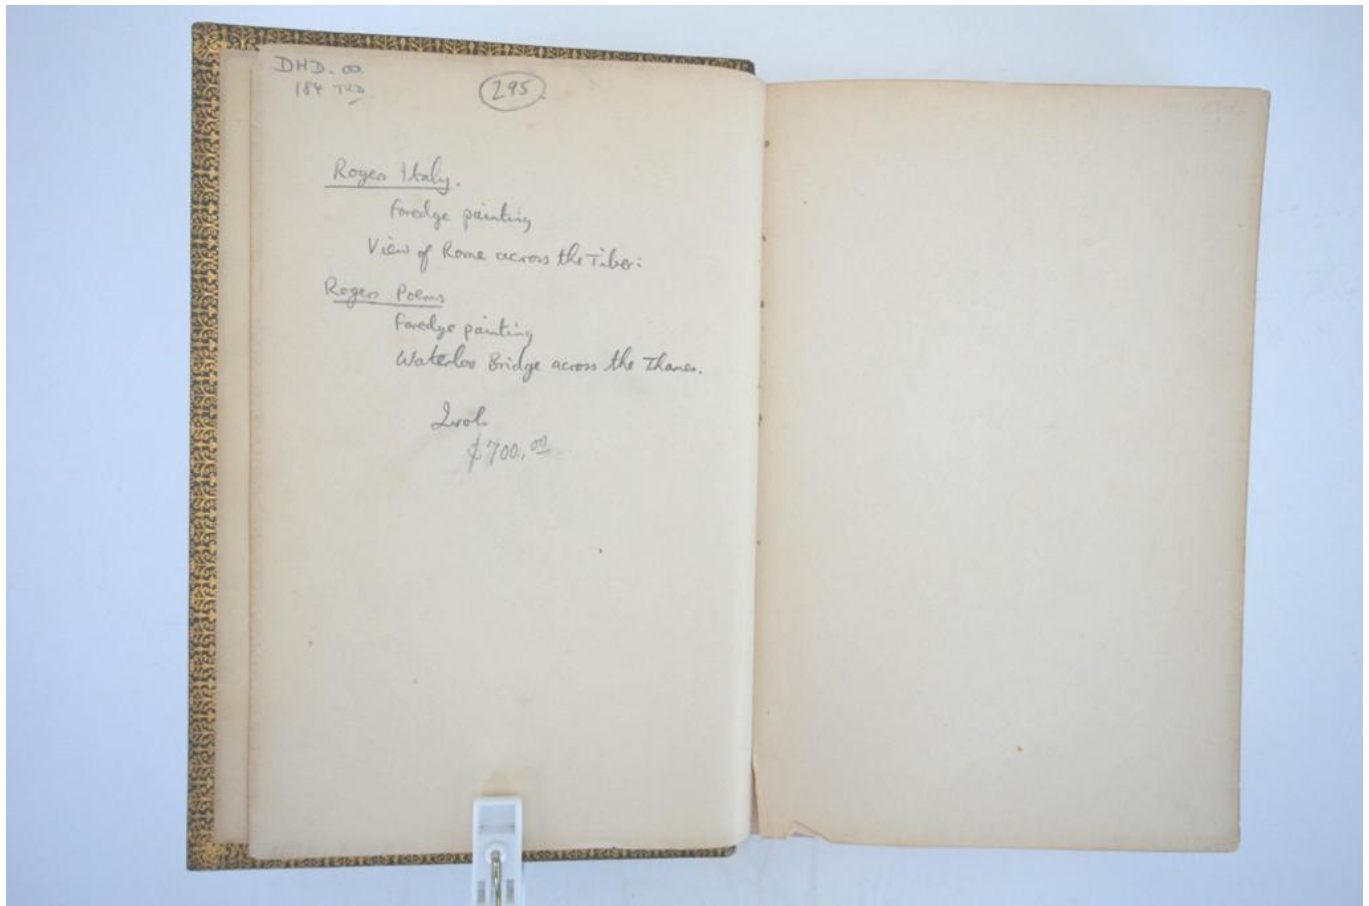 DHD. oo
184 TRD
295
Rogers Italy.
Foredge painting
View of Rome across the Tiber:
Rogers Poems
Foredge painting
Waterloo Bridge across the Thames.
2 vols.
$700.00